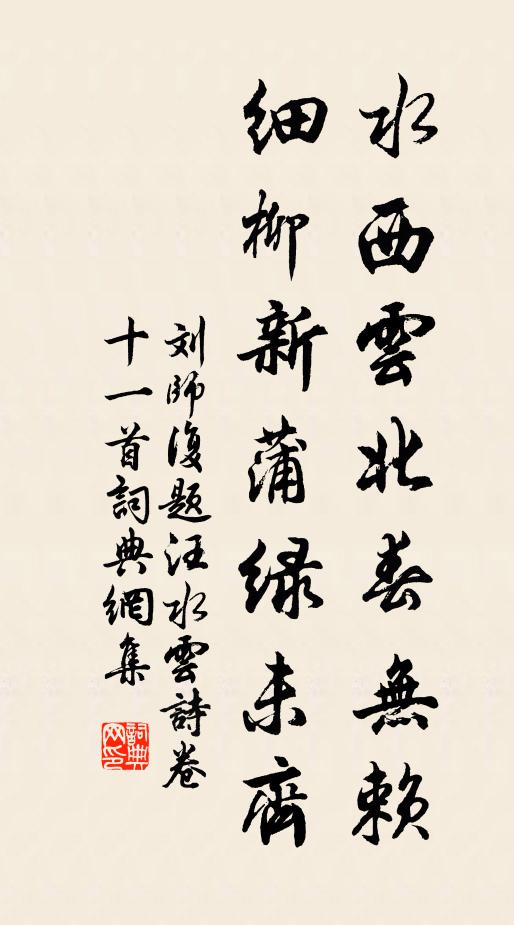 水西雲北春無賴
細柳新蒲緑未齊
刘師復题汪水雲詩卷
十一首詞典網集
詞典
网印